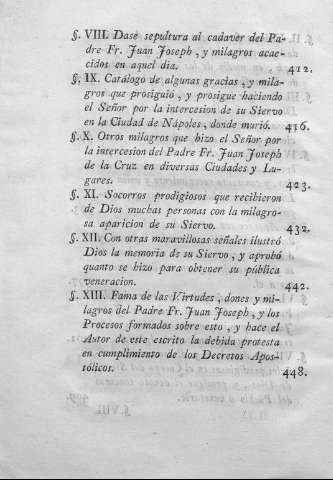 §. VIII. Dase sepultura al cadaver del Pa-
dre Fr. Juan Joseph, y milagros acae-
cidos en aquel dia. 412.
§. IX. Catálogo de algunas gracias, y mila-
gros que prosiguió, y prosigue haciendo
el Señor por la intercesion de su Siervo
en la Ciudad de Nápoles, donde murió. 416.
§. X. Otros milagros que hizo el Señor por
la intercesion del Padre Fr. Juan Joseph
de la Cruz en diversas Ciudades y Lu-
gares. 423.
§. XI. Socorros prodigiosos que recibieron
de Dios muchas personas con la milagro-
sa aparicion de su Siervo. 432.
§. XII. Con otras maravillosas señales ilustró
Dios la memoria de su Siervo, y aprobó
quanto se hizo para obtener su pública
veneracion. 442.
§. XIII. Fama de las Virtudes, dones y mi-
lagros del Padre Fr. Juan Joseph, y los
Procesos formados sobre esto, y hace el
Autor de este escrito la debida protesta
en cumplimiento de los Decretos Apos-
tólicos. 448.